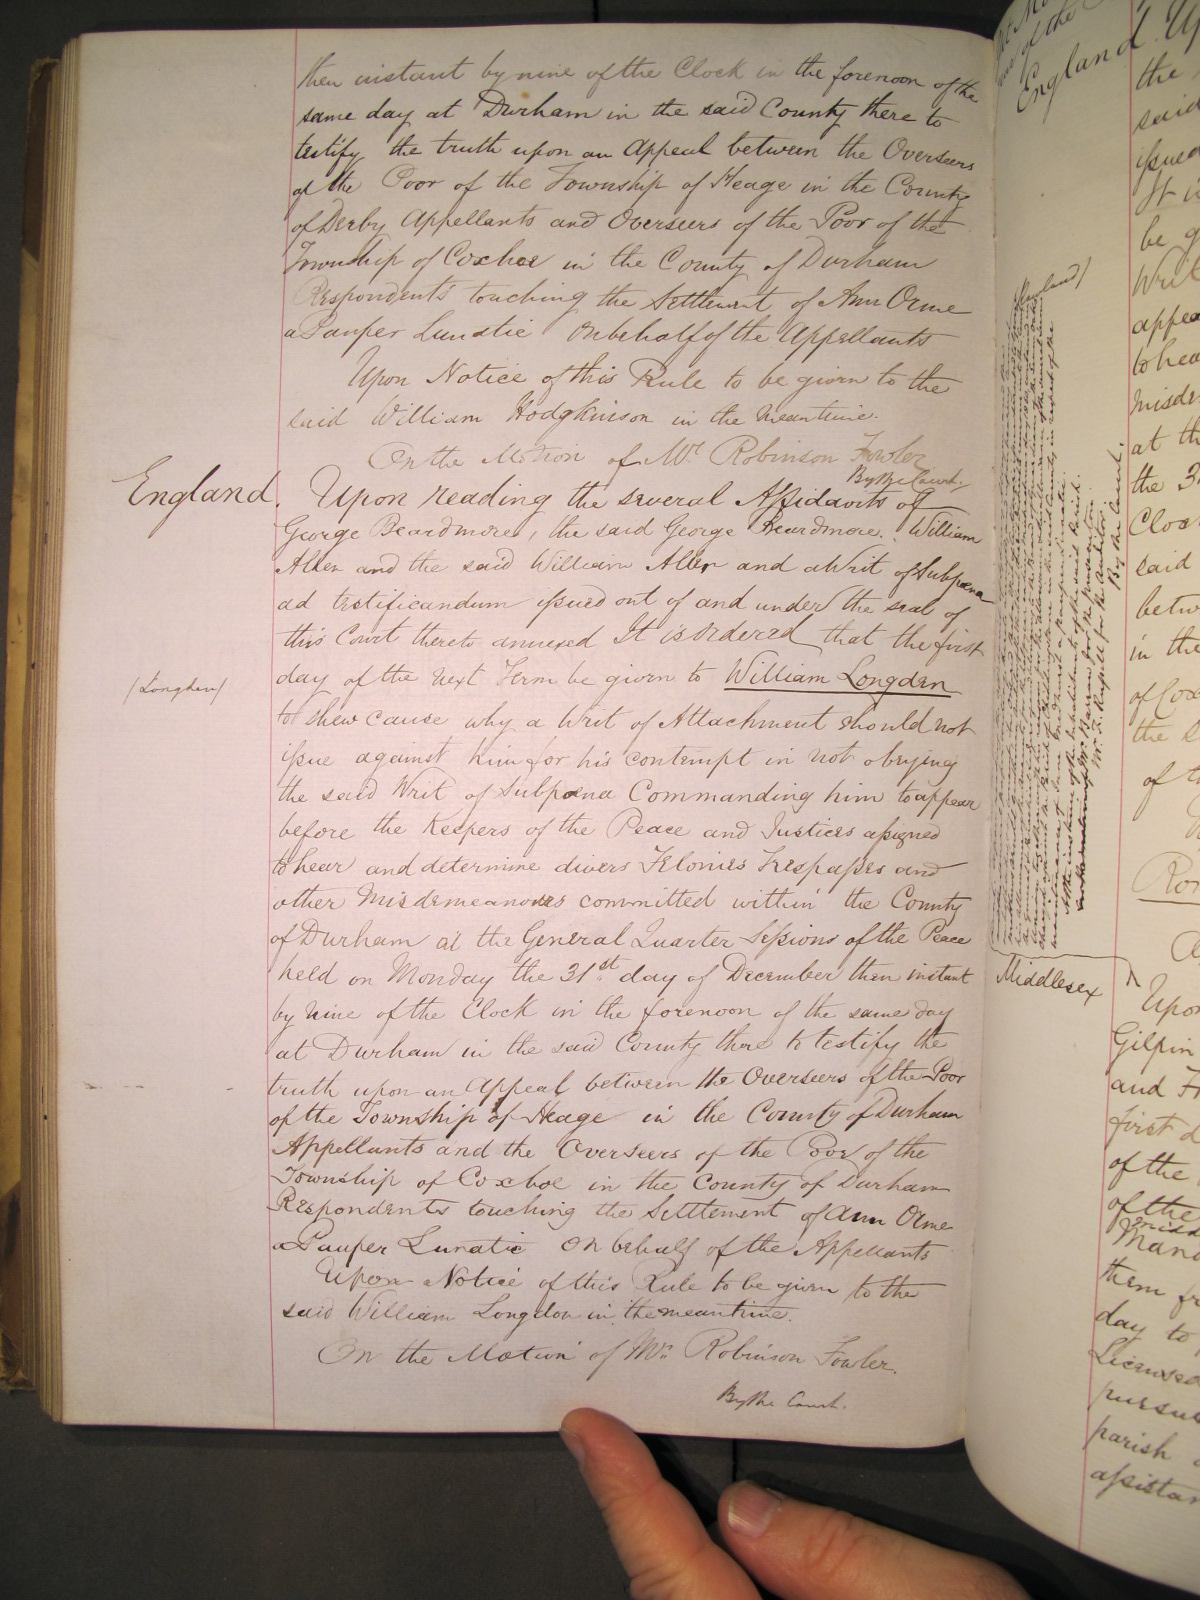 then instant by nine of the Clock in the forenoon of the
same day at Durham in the said County there to
testify the truth upon an Appeal between the Overseers
of the Poor of the Township of Heage in the County
of Derby Appellants and Overseers of the Poor of the
Township of Coxhoe in the County of Durham
Respondents touching the Settlement of Ann Orme
a Pauper Lunatic On behalf of the Appellants
Upon Notice of this Rule to be given to the
said William Hodgkinson in the meantime.
On the Motion of Mr. Robinson Fowler
By the Court.
England. Upon reading the several Affidavits of
George Beardmore, the said George Beardmore. William
Allen and the said William Allen and a Writ of Subpœna
ad testificandum issued out of and under the seal of
this Court thereto annexed It is Ordered that the first
day of the next Term be given to William Longden
(Longden)
to shew cause why a Writ of Attachment should not
issue against him for his contempt in not obeying
the said Writ of Subpœna Commanding him to appear
before the Keepers of the Peace and Justices assigned
to hear and determine divers Felonies Trespasses and
other Misdemeanours committed within the County
of Durham at the General Quarter Sessions of the Peace
held on Monday the 31st day of December then instant
by nine of the Clock in the forenoon of the same day
at Durham in the said County there to testify the
truth upon an Appeal between the Overseers of the Poor
of the Township of Heage in the County of Durham
Appellants and the Overseers of the Poor of the
Township of Coxhoe in the County of Durham
Respondents touching the Settlement of Ann Orme
a Pauper Lunatic On behalf of the Appellants
Upon Notice of this Rule to be given to the
said William Longdon in the meantime.
On the Motion of Mr. Robinson Fowler.
By the Court.
England. Up
the
said
issued
It is
be g
Writ
appea
to hea
misde
at th
the 3
Cloc
said
betw
in the
of Cox
the S
of t
(England)
By the Court.
Middlesex
Upon
Gilpin
and Fr
first d
of the
of the
them fr
day to
Licensed
pursua
parish
assistan